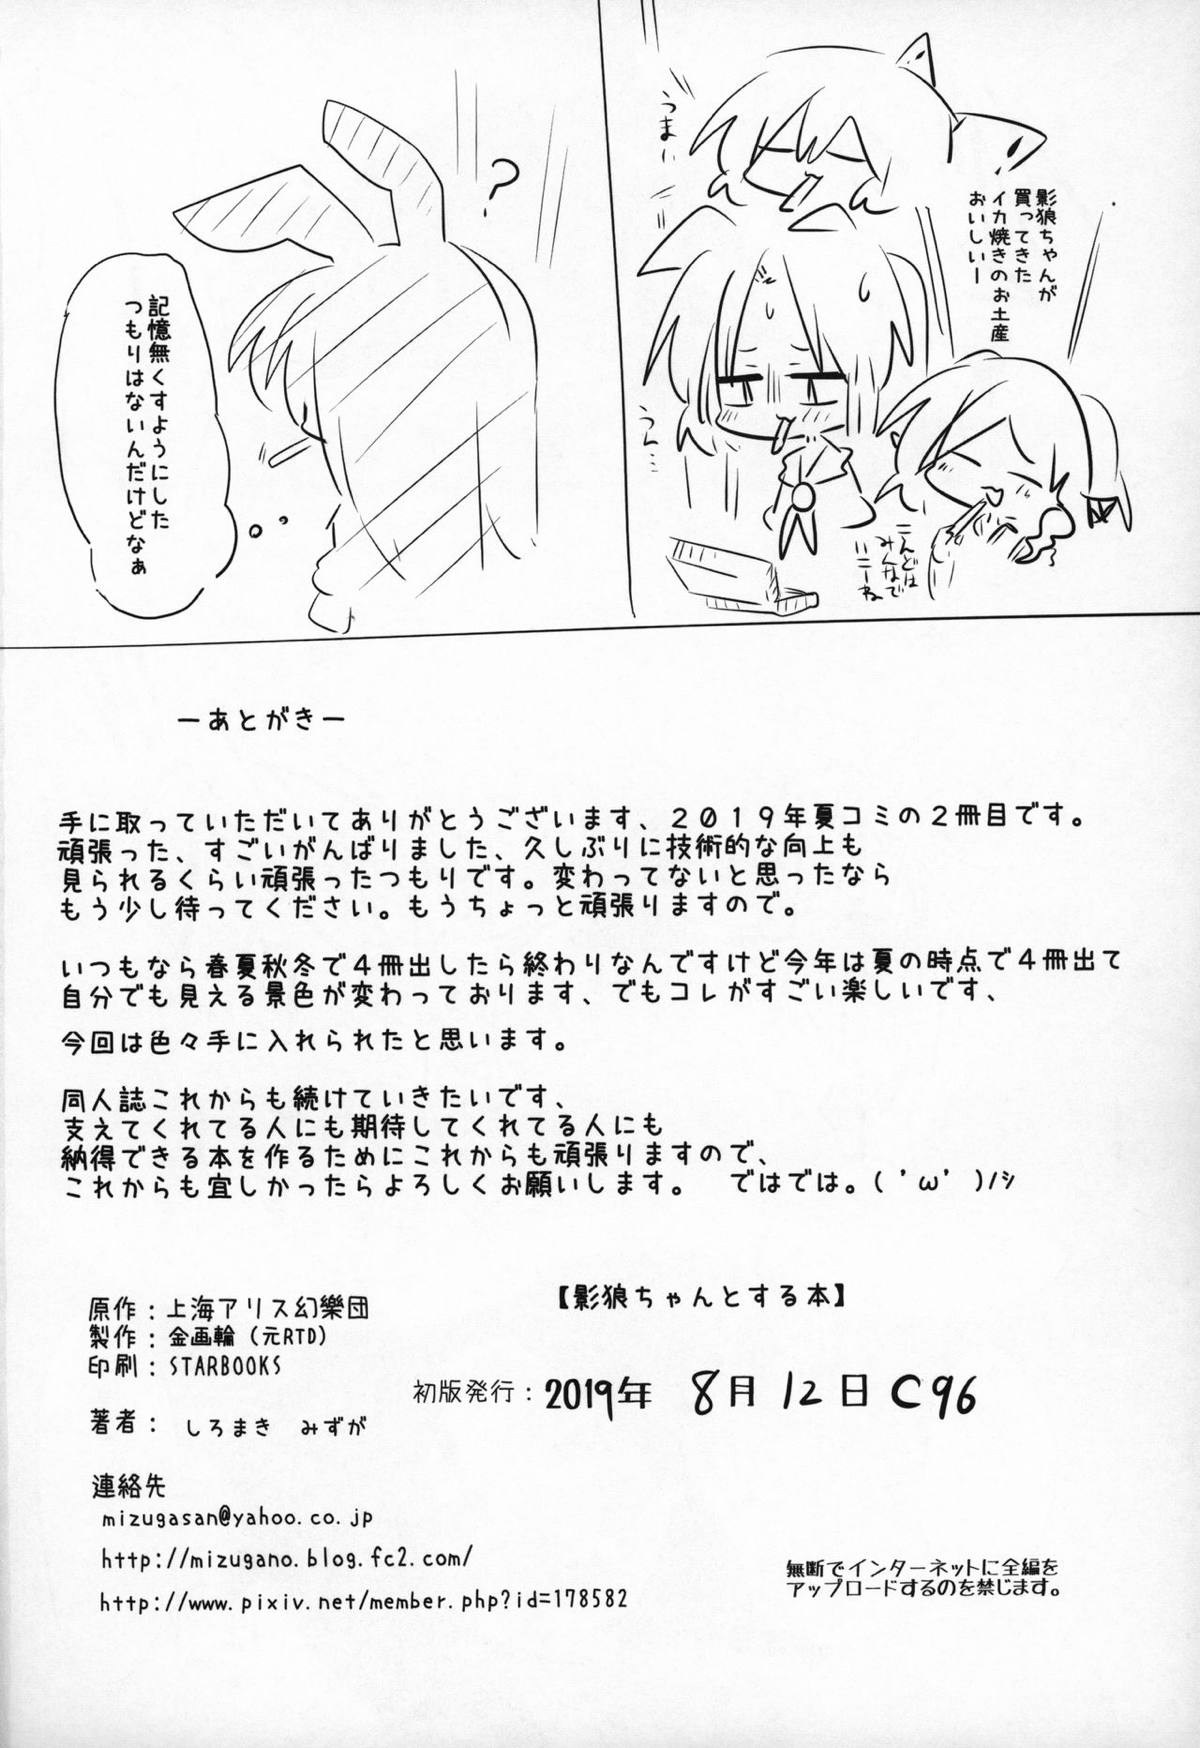 うまい
影狼ちゃんが
買ってきた
イカ焼きのお土産
おいしいー
うん…
こんどは
みんなで
いこーね
?
記憶無くすようにした
つもりはないんだけどなぁ
ーあとがきー
手に取っていただいてありがとうございます、２０１９年夏コミの２冊目です。
頑張った、すごいがんばりました、久しぶりに技術的な向上も
見られるくらい頑張ったつもりです。変わってないと思ったなら
もう少し待ってください。もうちょっと頑張りますので。
いつもなら春夏秋冬で４冊出したら終わりなんですけど今年は夏の時点で４冊出て
自分でも見える景色が変わっております、でもコレがすごい楽しいです、
今回は色々手に入れられたと思います。
同人誌これからも続けていきたいです、
支えてくれてる人にも期待してくれてる人にも
納得できる本を作るためにこれからも頑張りますので、
これからも宜しかったらよろしくお願いします。　ではでは。( 'ω' )ﾉｼ
【影狼ちゃんとする本】
原作：上海アリス幻樂団
製作：金画輪（元RTD）
印刷：STARBOOKS
初版発行：2019年 8月 12日 C96
著者： しろまき　みずが
連絡先
mizugasan@yahoo.co.jp
http://mizugano.blog.fc2.com/
http://www.pixiv.net/member.php?id=178582
無断でインターネットに全編を
アップロードするのを禁じます。